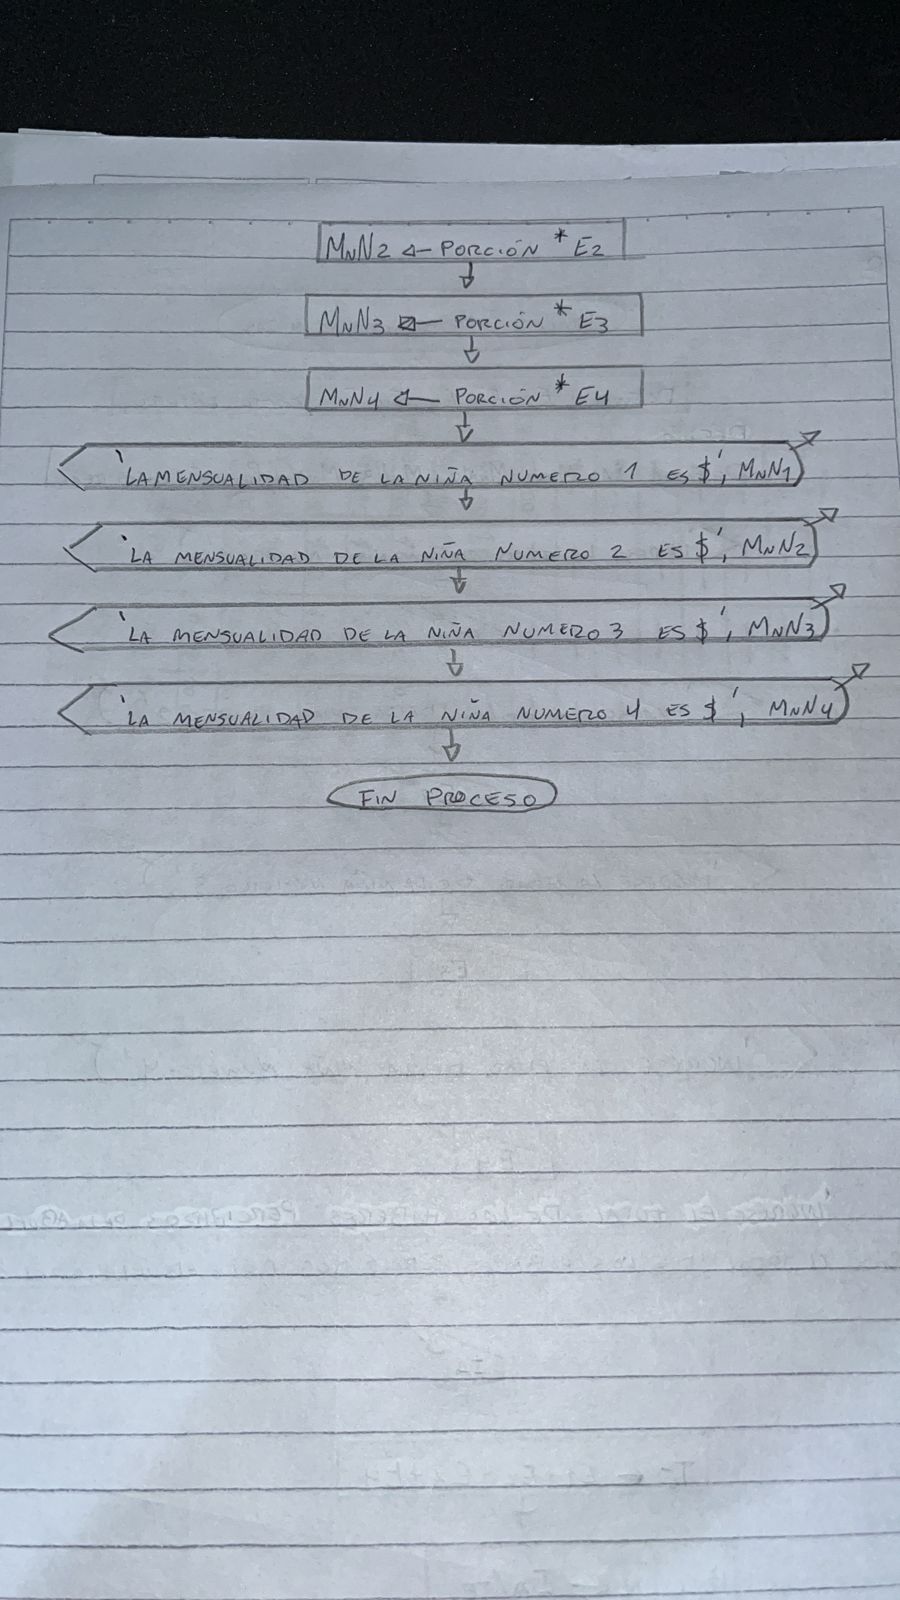 MNN2 ← PORCIÓN * E2
MNN3 ← PORCIÓN * E3
MNN4 ← PORCIÓN * E4
'LA MENSUALIDAD DE LA NIÑA NUMERO 1 ES $', MNN1
'LA MENSUALIDAD DE LA NIÑA NUMERO 2 ES $', MNN2
'LA MENSUALIDAD DE LA NIÑA NUMERO 3 ES $', MNN3
'LA MENSUALIDAD DE LA NIÑA NUMERO 4 ES $', MNN4
FIN PROCESO